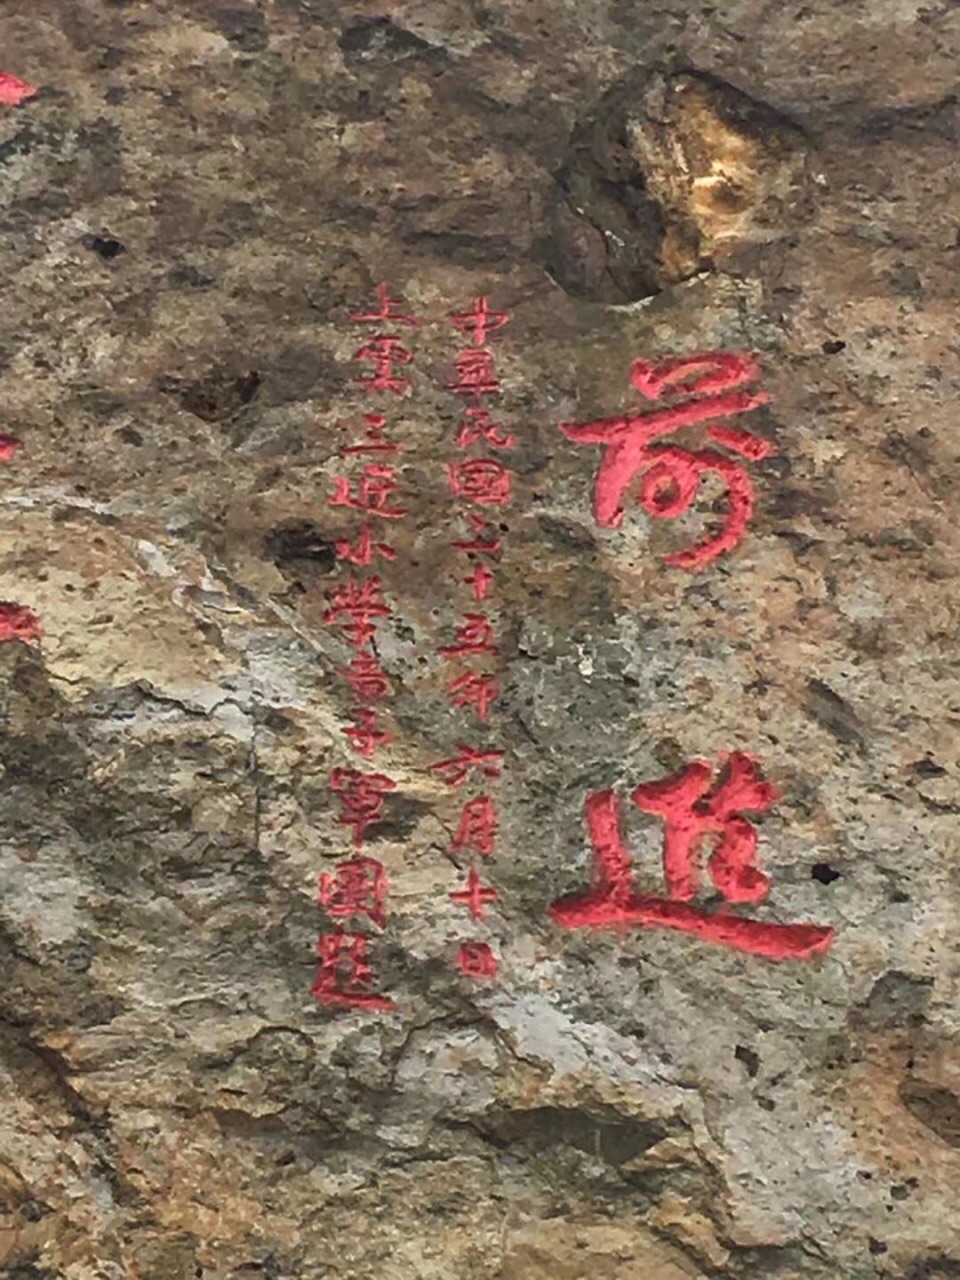 前進
中華民國二十五年六月十日
上雲三近小學童子軍團題